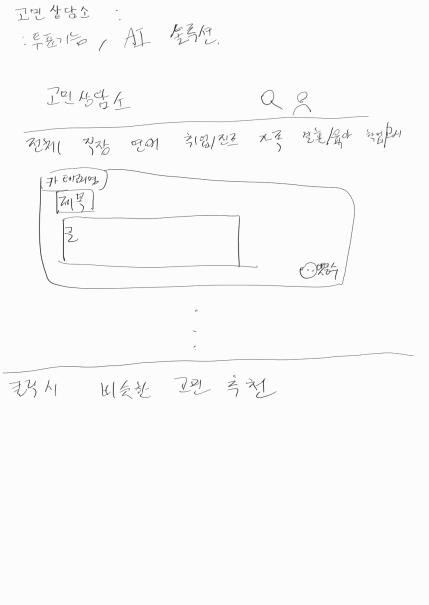 고민 상담소 :
: 투표기능, AI 솔루션.
고민 상담소
전체 직장 연애 취업/진로 가족 결혼/육아 학업/입시
카테고리명
제목
글
댓글수
클릭 시 비슷한 고민 추천